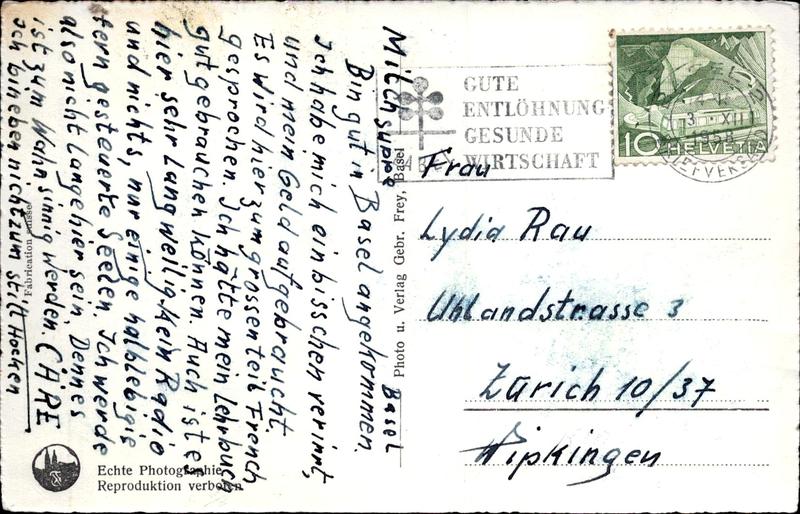 Milch suppe Basel
Bin gut in Basel angekommen.
Ich habe mich ein bisschen verirrt,
und mein Geld aufgebraucht
Es wird hier zum grossenteil French
gesprochen. Ich hätte mein Lehrbuch
gut gebrauchen können. Auch ist er
hier sehr langweilig kein Radio
und nichts, nur einige halblebige
fern gesteuerte Seelen. Ich werde
also nicht lange hier sein, Dennes
ist zum Wahnsinnig werden
ich bin eben nicht zum still Hocken
Fabrication suisse
Echte Photographie
Reproduktion verboten
Photo u. Verlag Gebr. Frey, Basel
GUTE
ENTLÖHNUNG
GESUNDE
WIRTSCHAFT
3. XII
1958
10 HELVETIA
Frau
Lydia Rau
Uhlandstrasse 3
Zürich 10/37
Wipkingen